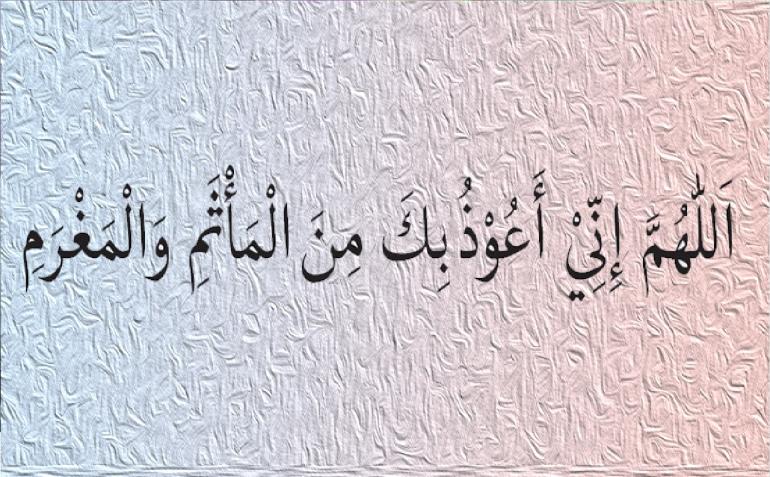 اَللّٰهُمَّ إِنِّيْ أَعُوْذُ بِكَ مِنَ الْمَأْثَمِ وَالْمَغْرَمِ